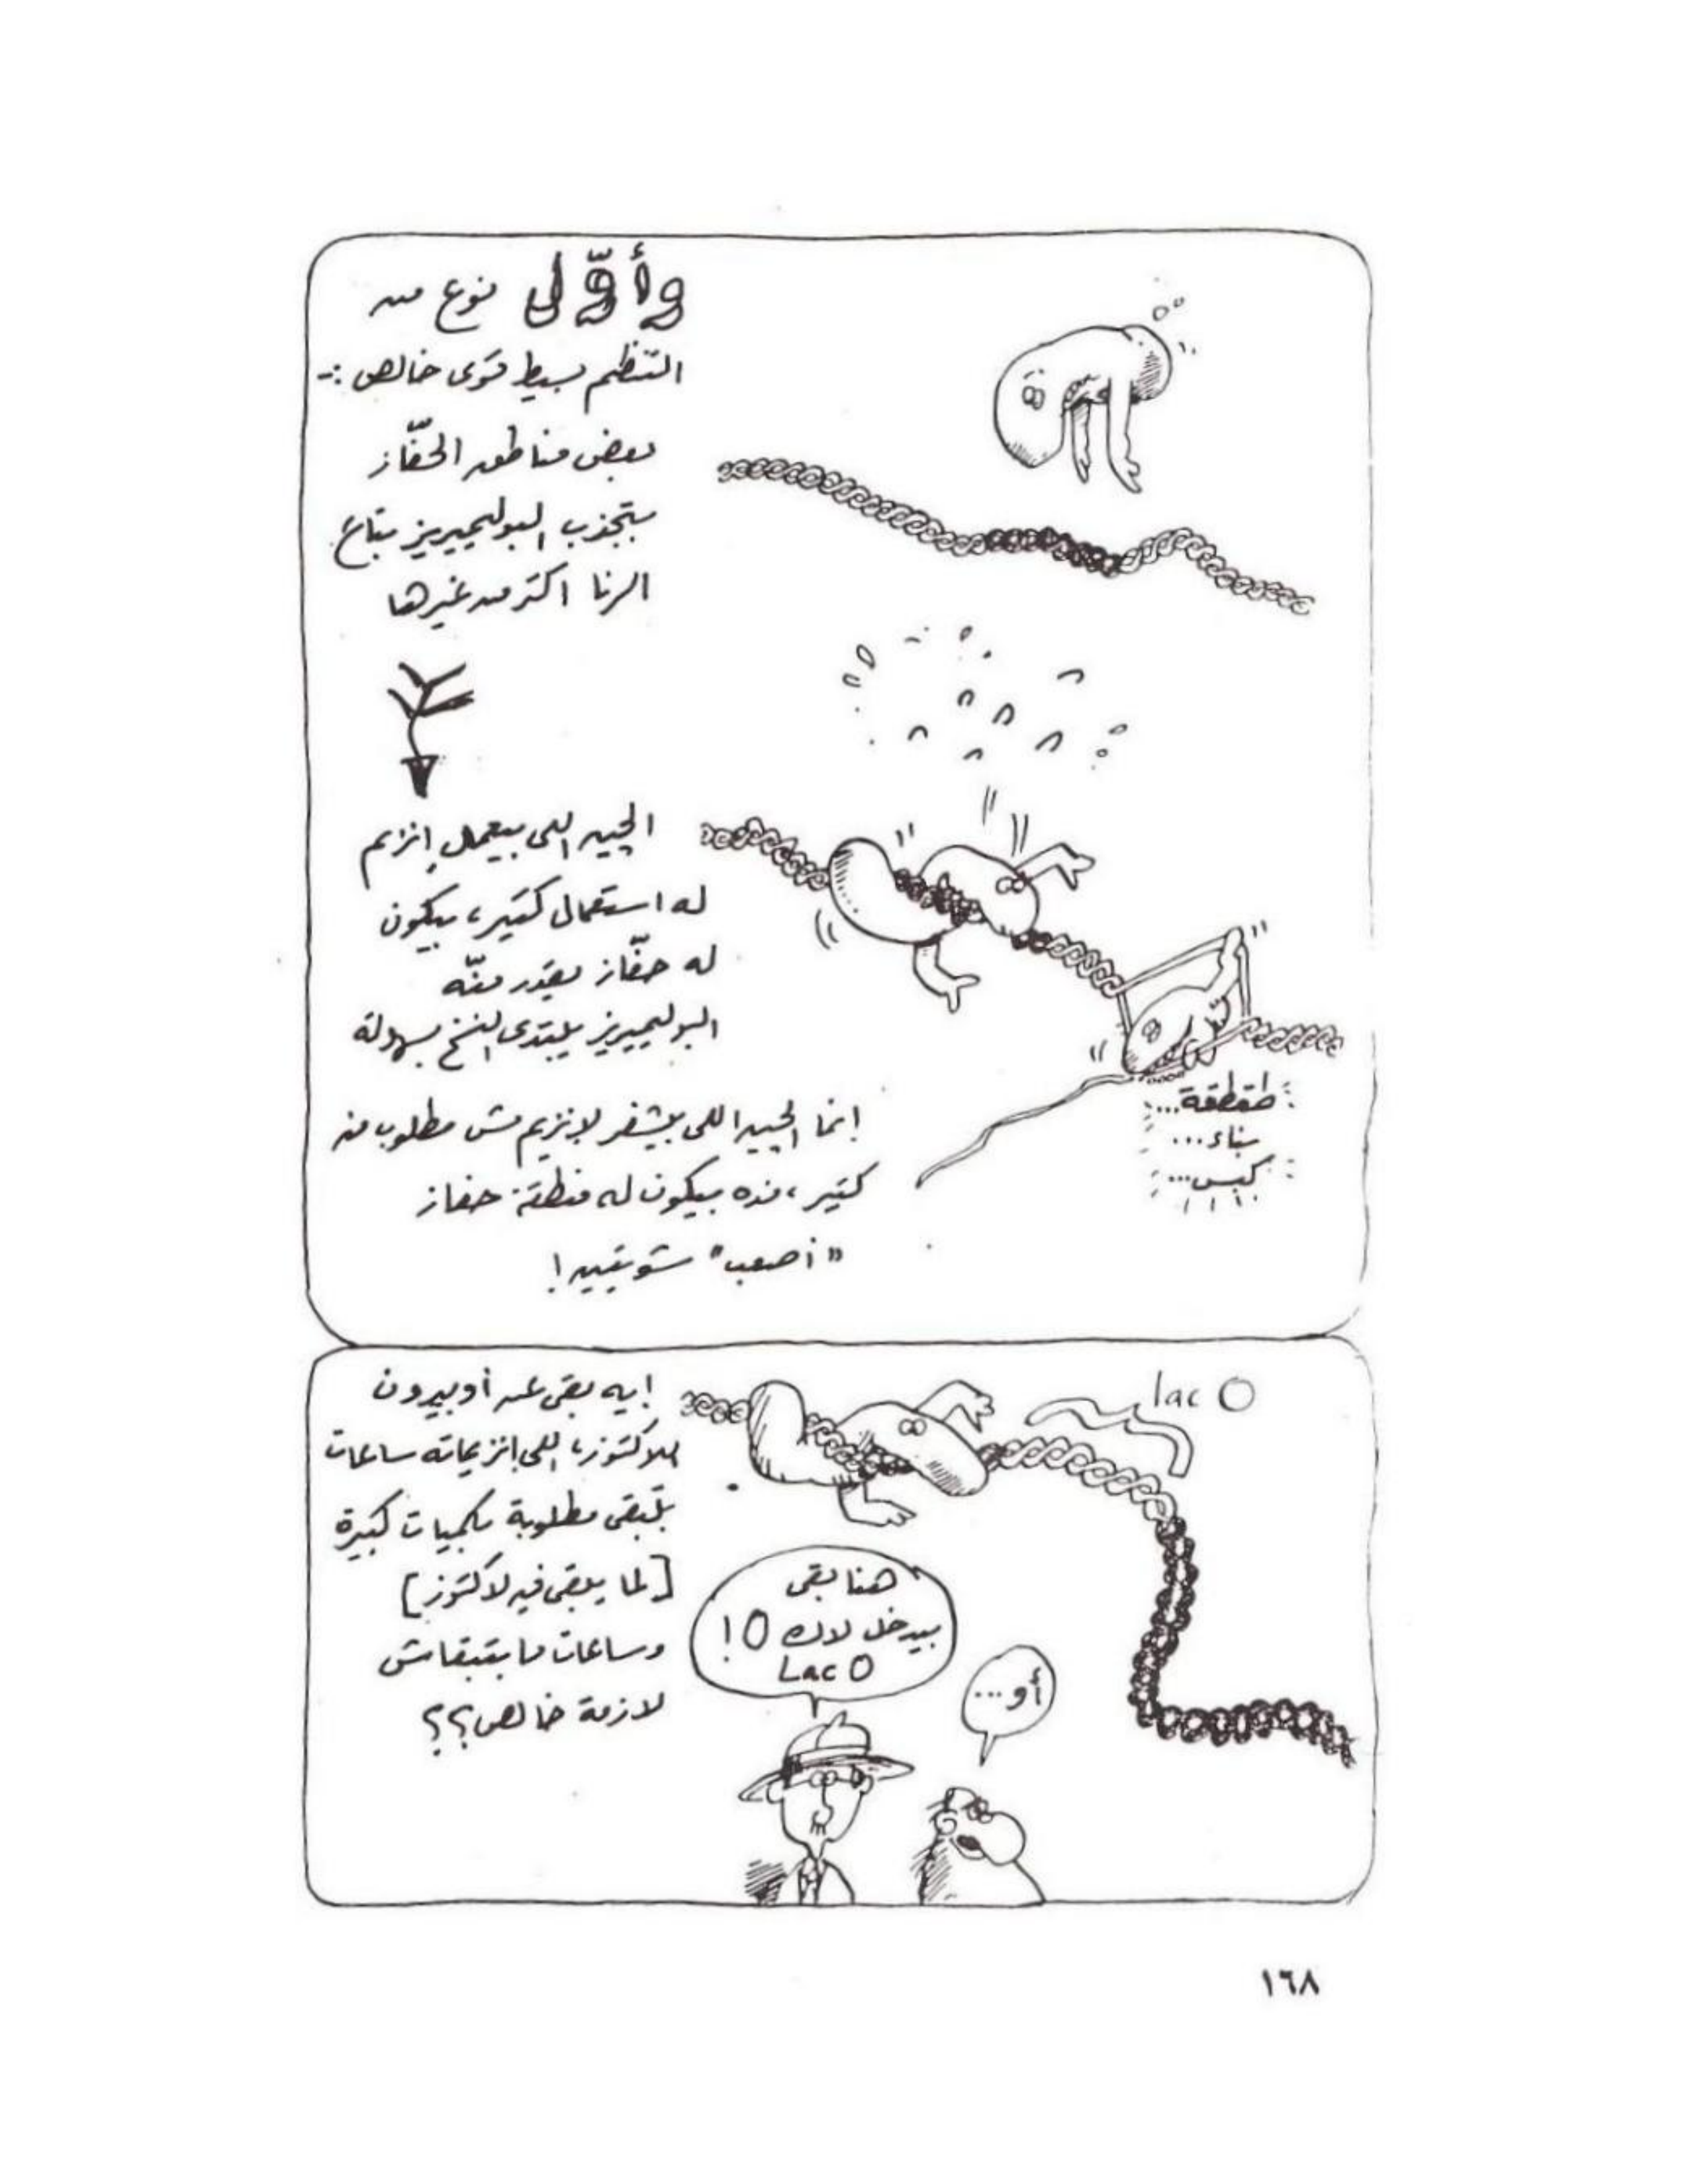 وأوّل نوع من
التنظّم بسيط قوى خالص :-
بعض مناطق الحفّاز
بتجذب البوليميريز بتاع
الرنا اكتر من غيرها
الچين اللى بيعمل إنزيم
له استعمال كتير، بيكون
له حفّاز يقدر منّه
البوليميريز يبتدى النسخ بسهولة
إنما الچين اللى بيشفر لإنزيم مش مطلوب منه
كتير، فده بيكون له منطقة حفاز
"أصعب" شويتين!
طقطقة...
بناء...
كبس...
إيه بقى عن أوبيرون
اللاكتوز، اللى إنزيماته ساعات
بتبقى مطلوبة بكميات كبيرة
[لما يبقى فيه لاكتوز]
وساعات ما بتبقاش
لازمة خالص؟؟
lac O
هنا بقى
بيدخل لاك O!
Lac O
أو...
١٦٨